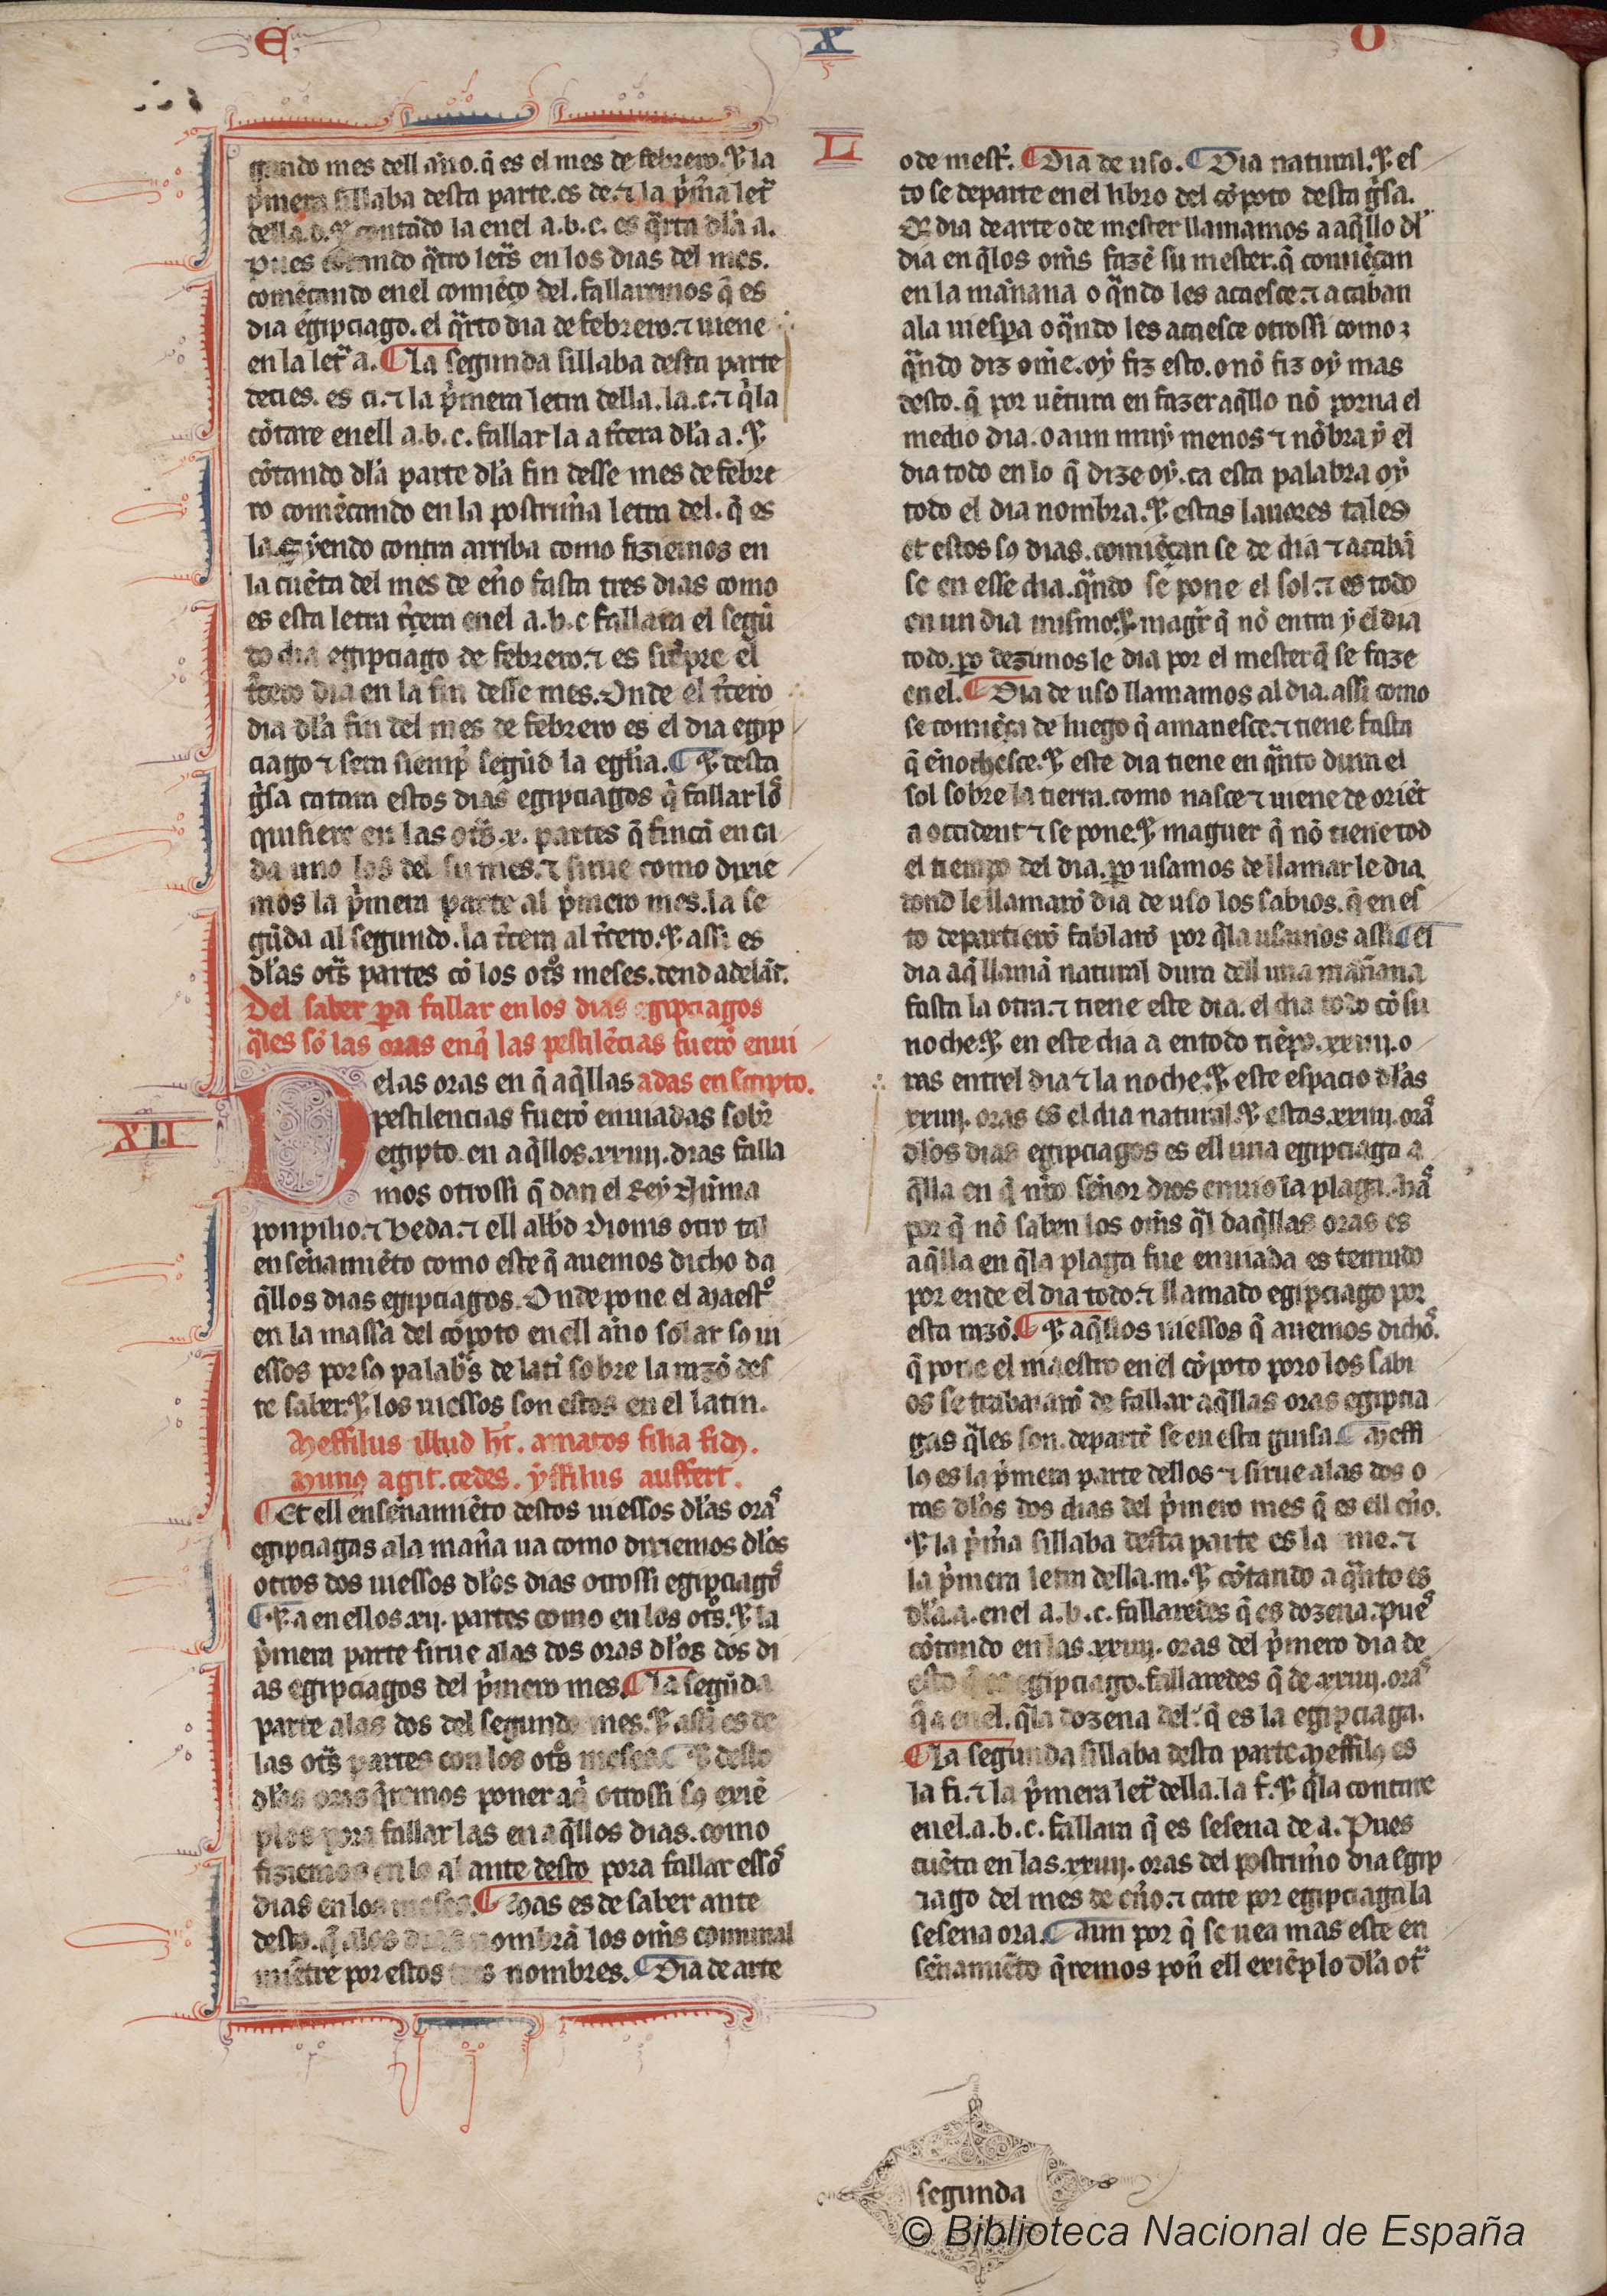 E X O
L
gundo mes dell año. q̃ es el mes de febrero. ⁊ la
p̃mera sillaba desta parte. es de. ⁊ la p̃m̃a letã
della. d. ⁊ contãdo la enel a.b.c. es q̃rta dl̃a a.
pues contando q̃tro letãs en los dias del mes.
comẽçando enel comiẽço del. fallaremos q̃ es
dia egipciago. el q̃rto dia de febrero. ⁊ uiene
en la letã a. ¶ La segunda sillaba desta parte
decies. es ci. ⁊ la p̃mera letra della. la. c. ⁊ q̃ la
cõtare enell a.b.c. fallar la a t̃cera dl̃a a. ⁊
cõtando dl̃a parte dl̃a fin desse mes de febre
ro comẽçando en la postrim̃a letra del. q̃ es
la. yendo contra arriba como fiziemos en
la cuẽta del mes de en̄o fasta tres dias como
es esta letra t̃cera enel a.b.c fallara el segũ
do dia egipciago de febrero. ⁊ es siẽpre el
t̃cero dia en la fin desse mes. Onde el t̃cero
dia dl̃a fin del mes de febrero es el dia egip
ciago ⁊ sera siemp̃ segũd la egl̃ia. ¶ ⁊ desta
g̃sa catara estos dias egipciagos q̃ fallar lõs
quisiere en las otãs .x. partes q̃ fincã en ca
da uno los del su mes. ⁊ sirue como dixie
mos la p̃mera parte al p̃mero mes. la se
gũda al segundo. la t̃cera al t̃cero. ⁊ assi es
dl̃as otãs partes cõ los otõs meses. dend adelãt.
Del saber pa fallar en los dias egipciagos
q̃les sõ las oras enq̃ las pestilẽcias fuerõ enui
adas en Egipto.
Delas oras en q̃ aq̃llas
pestilencias fuerõ enuiadas sobr̃
XII
egipto. en aq̃llos .xxiiij. dias falla
mos otrossi q̃ dan el Rey Nũma
ponpilio. ⁊ Beda. ⁊ ell abbd Dionis otro tal
enseñamiẽto como este q̃ auemos dicho da
q̃llos dias egipciagos. Onde pone el maestõ
en la massa del cõpoto enell año solar so ui
essos por so palabãs de latĩ sobre la razõ des
te saber. ⁊ los uiessos son estos en el latin.
Meffilus illud hr̃. amatos filia fidy.
Muno agit. cedes. yffilus auffert.
¶ Et ell enseñamiẽto destos uiessos dl̃as oras
egipciagas ala mañ̃a ua como dixiemos dl̃os
otros dos uiessos dl̃os dias otrossi egipciagos
¶ ⁊ a en ellos .xij. partes como en los otõs. ⁊ la
p̃mera parte sirue alas dos oras dl̃os dos di
as egipciagos del p̃mero mes. ¶ La segũda
parte alas dos del segundo mes. ⁊ assi es de
las otãs partes con los otõs meses. ¶ ⁊ desto
dl̃as oras q̃remos poner aq̃ otrossi so exiẽ
plos pora fallar las en aq̃llos dias. como
fiziemos en lo al ante desto pora fallar essos
dias en los meses. ¶ Mas es de saber ante
desto. q̃ alos dias nombrã los om̃s comunal
miẽtre por estos tres nombres. ¶ Dia de arte
o de mestr̃. ¶ Dia de uso. ¶ Dia natural. ⁊ es
to se departe en el libro del cõpoto desta g̃sa.
¶ Dia de arte o de mester llamamos a aq̃llo dl̃
dia en q̃ los om̃s fazẽ su mester. q̃ comiẽçan
en la mañana o q̃ndo les acaesce. ⁊ acaban
ala uiespa o q̃ndo les acaesce otrossi como
q̃ndo diz om̃e. oy fiz esto. o nõ fiz oy mas
desto. q̃ por uẽtura en fazer aq̃llo nõ porna el
medio dia. o aun muy menos ⁊ nõbra y el
dia todo en lo q̃ dize oy. ca esta palabra oy
todo el dia nombra. ⁊ estas lauores tales
et estos so dias. comiẽçan se de dia ⁊ acabã
se en esse dia. q̃ndo se pone el sol. ⁊ es todo
en un dia mismo. ⁊ magr̃ q̃ nõ entra y el dia
todo. po dezimos le dia por el mester q̃ se faze
en el. ¶ Dia de uso llamamos al dia. assi como
se comiẽça de luego q̃ amanesce. ⁊ tiene fasta
q̃ enochesce. ⁊ este dia tiene en q̃nto dura el
sol sobre la tierra. como nasce ⁊ uiene de oriẽt
a occident ⁊ se pone. ⁊ maguer q̃ nõ tiene tod
el tiempo del dia. po usamos de llamar le dia.
dond le llamarõ dia de uso los sabios. q̃ en es
to departierõ fablarõ por q̃ la usamos assi ¶ El
dia aq̃ llamã natural dura dell una mañana
fasta la otra. ⁊ tiene este dia. el dia todo cõ su
noche. ⁊ en este dia a en todo tiẽpo. xxiiij. o
ras entrel dia ⁊ la noche. ⁊ este espacio dl̃as
xxiiij. oras es el dia natural. ⁊ estas .xxiiij. oras
dl̃os dias egipciagos es ell una egipciaga a
q̃lla en q̃ nr̃o señor dios enuio la plaga. Mas
por q̃ nõ saben los om̃s q̃l daq̃llas oras es
aq̃lla en q̃ la plaga fue enuiada es temudo
por ende el dia todo. ⁊ llamado egipciago por
esta razõ. ¶ ⁊ aq̃llos uiessos q̃ auemos dichos.
q̃ pone el maestro en el cõpoto poro los sabi
os se trabaiarõ de fallar aq̃llas oras egipcia
gas q̃les son. departẽ se en esta guisa. ¶ Meffi
lo es la p̃mera parte dellos ⁊ sirue alas dos o
ras dl̃os dos dias del p̃mero mes q̃ es ell en̄o.
⁊ la p̃m̃a sillaba desta parte es la me. ⁊
la p̃mera letra della .m. ⁊ cõtando a q̃nto es
dl̃a .a. en el a.b.c. fallaredes q̃ es dozena. pues
cõtando en las .xxiiij. oras del p̃mero dia de
esto q̃ es egipciago. fallaredes q̃ de .xxiiij. oras
q̃ a en el. q̃ la dozena del. q̃ es la egipciaga.
¶ La segunda sillaba desta parte meffilo es
la fi. ⁊ la p̃mera letã della. la f. ⁊ q̃ la contare
en el .a.b.c. fallara q̃ es sesena de a. Pues
cuẽta en las .xxiiij. oras del postrim̃o dia egip
ciago del mes de en̄o. ⁊ cate por egipciaga la
sesena ora. ¶ Aun por q̃ se uea mas este en
señamiẽto q̃remos poñ ell exiẽplo dl̃a otã
segunda
© Biblioteca Nacional de España